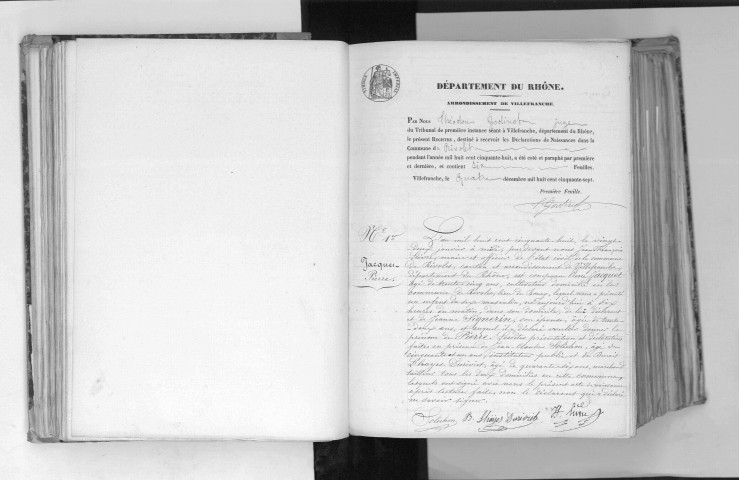 DÉPARTEMENT DU RHÔNE.
ARRONDISSEMENT DE VILLEFRANCHE.
PAR NOUS juge
du Tribunal de première instance séant à Villefranche, département du Rhône,
le présent REGISTRE, destiné à recevoir les Déclarations de Naissances dans la
Commune d
pendant l'année mil huit cent cinquante-huit, a été coté et paraphé par première
et dernière, et contient six Feuilles.
Villefranche, le quatre décembre mil huit cent cinquante-sept.
Première Feuille.
N° 1er
Jacquet
Pierre
L'an mil huit cent cinquante huit, le vingt
deux janvier à midi, pardevant nous
maire et officier de l'état civil de la commune
de Rivolet, canton et arrondissement de Villefranche,
département du Rhône, est comparu Pierre Jacquet
âgé de trente cinq ans, cultivateur domicilié en cette
commune de Rivolet, lequel nous a présenté
un enfant du sexe masculin, né aujourd'hui à dix
heures du matin, dans son domicile, de lui déclarant
et de Jeanne son épouse, âgée de trente
deux ans, et auquel il a déclaré vouloir donner le
prénom de Pierre. Lesdites présentation et déclaration
faites en présence de Jean Claude âgé de
cinquante et un ans, instituteur public, et de Benoit
âgé de quarante six ans, marchand
tailleur tous les deux domiciliés en cette commune,
lesquels ont signé avec nous le présent acte de naissance
après lecture faite, non le déclarant qui a déclaré
ne savoir signer.